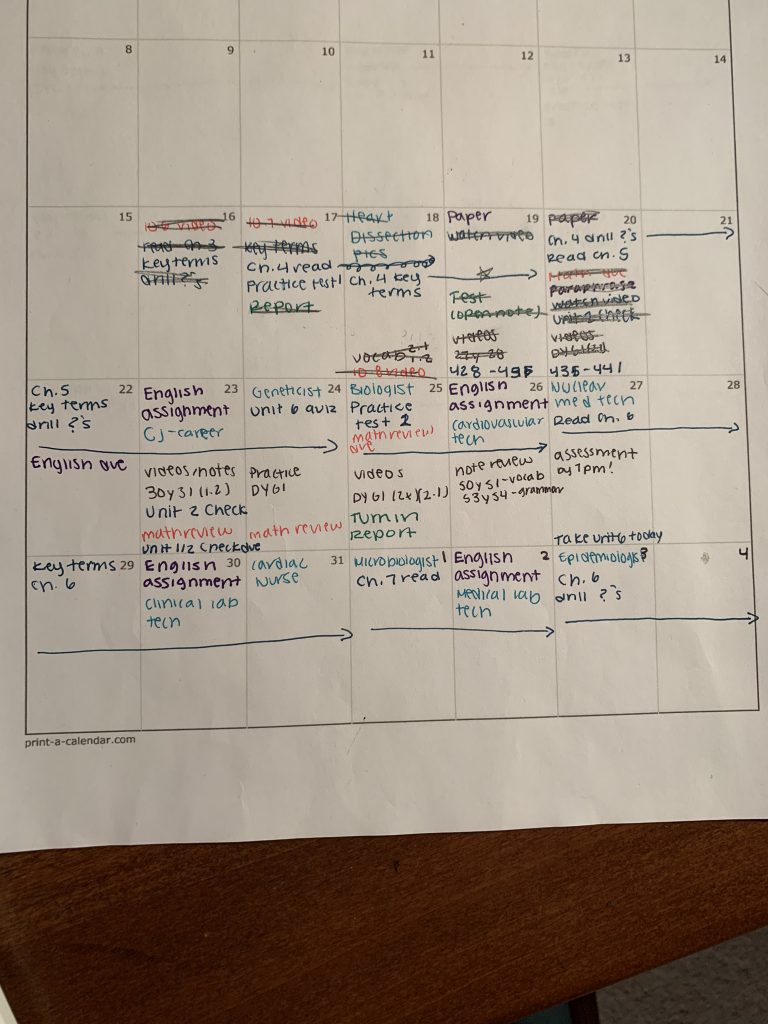 8 9 10 11 12 13 14
15
16
10.6 video
read ch 3
key terms
drill ?'s
17
10.7 video
key terms
Ch. 4 read
Practice test 1
Report
18
Heart
Dissection
pics
Ch. 4 key
terms
vocab 2.1
1.2
10.8 video
19
Paper
watch video
Test
(open note)
videos
27 y 28
428-435
20
paper
Ch. 4 drill ?'s
Read Ch. 5
Math due
paraphrase
watch video
unit 2 check
videos
435-441
21
22
Ch. 5
key terms
drill ?'s
English due
23
English
assignment
CJ-career
videos/notes
30 y 31 (1.2)
Unit 2 Check
math review
unit 1/2 check due
24
Geneticist
unit 6 quiz
Practice
DYG1
math review
25
Biologist
Practice
test 2
math review
due
videos
DYG1 (2x)(2.1)
Turn in
Report
26
English
assignment
cardiovascular
tech
note review
50 y 51-vocab
53 y 54-grammar
27
Nuclear
med tech
Read Ch. 6
assessment
by 7pm!
Take unit 6 today
28
29
key terms
Ch. 6
30
English
assignment
clinical lab
tech
31
cardiac
nurse
1
Microbiologist
Ch. 7 read
2
English
assignment
Medical lab
tech
3
Epidemiologist
Ch. 6
drill ?'s
4
print-a-calendar.com